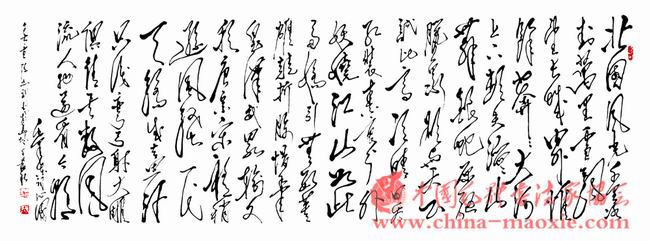 北国风光千里冰
封万里雪飘
望长城内外惟
馀莽莽大河
上下顿失滔滔山
舞银蛇原驰
腊象欲与天公
试比高须晴日看
红装素裹分外
妖娆江山如此
多娇引无数英
雄竞折腰惜秦
皇汉武略输文
采唐宗宋祖稍
逊风骚一代
天骄成吉思汗
只识弯弓射大雕
俱往矣数风
流人物还看今朝
www.china-maoxie.com